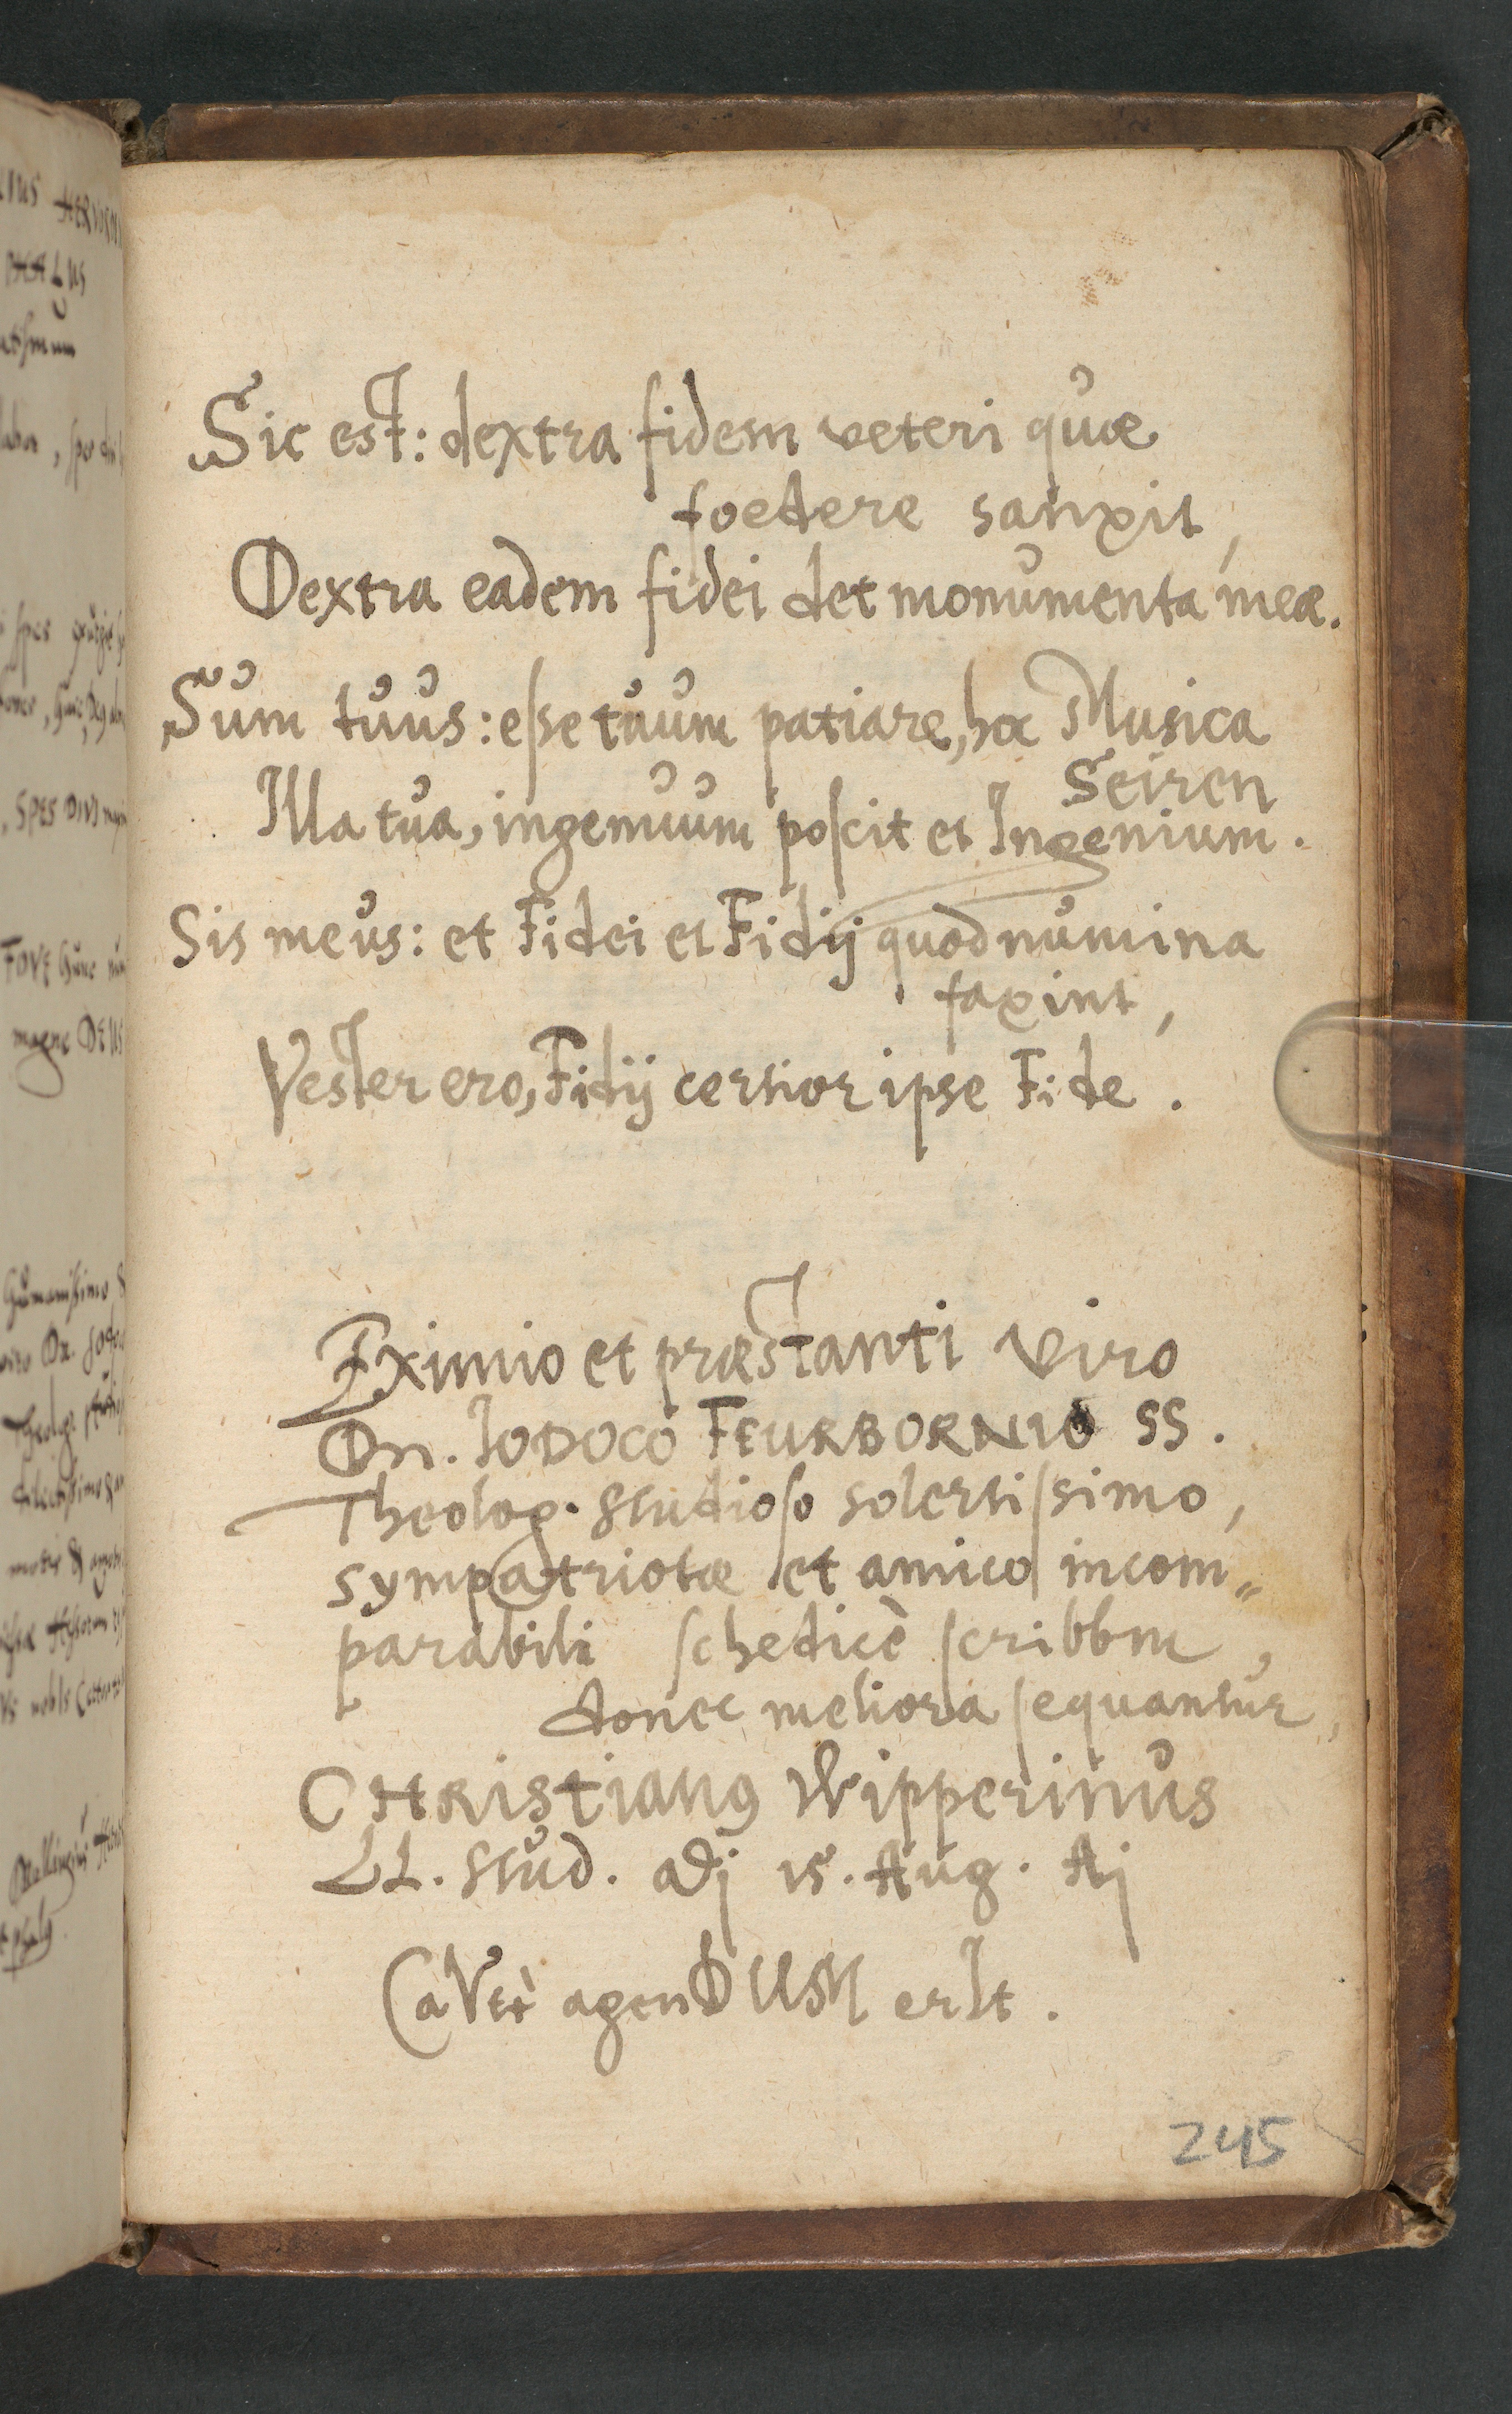 Sic est: dextra fidem veteri quæ
foedere sanxit,
Dextra eadem fidei det monumenta meæ.
Sum tuus: eſse tuum patiare, hoc Musica
Seiren
Illa tua, ingenuum poſcit et Ingenium.
Sis meus: et Fidei et Fidij quod numina
faxint,
Vester ero, Fidij certior ipse Fide.
Eximio et præstanti Viro
Dn. IODOCO FEURBORNIO SS.
Theolog. studioſo solertiſsimo,
sympatriotæ et amico incom„
parabili ſchedicè ſcribbm,
donec meliora ſequantur,
CHRistianus Wipperinus
LL. Stud. adj 15. Aug. Aj
CaVtè agenDUM erIt.
245